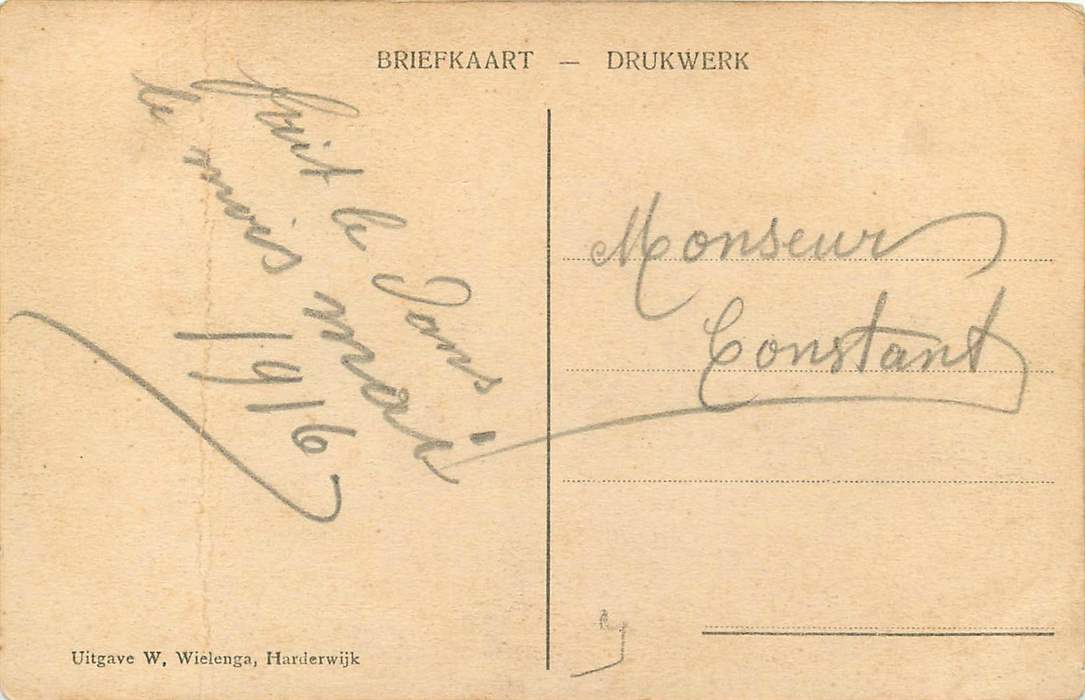 BRIEFKAART — DRUKWERK
fait le Dans
le mois mai
1916
Monseur
Constant
Uitgave W. Wielenga, Harderwijk